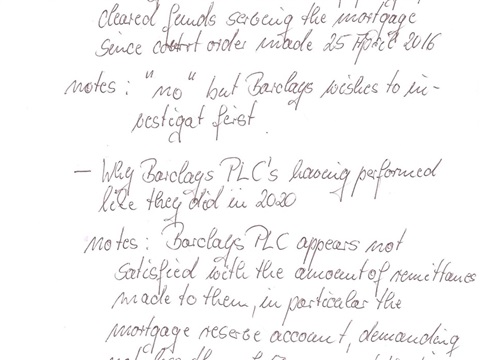 cleared funds serving the mortgage
since court order made 25 April 2016
notes: "no" but Barclays wishes to in-
vestigat ferst
- Why Barclays PLC's having performed
like they did in 2020
notes: Barclays PLC appears not
satisfied with the amount of remittances
made to them, in particular the
mortgage reserve account, demanding